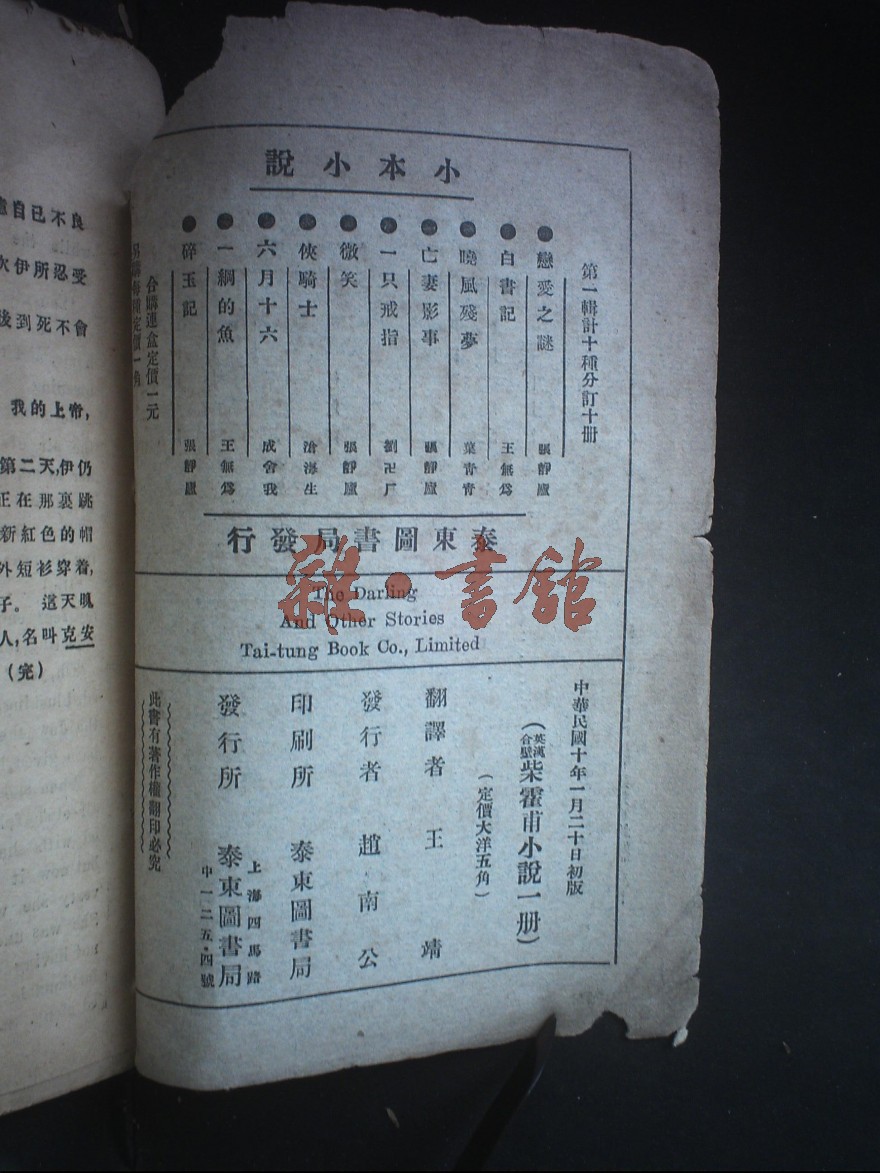 小本小說
第一輯計十種分訂十册
戀愛之謎 張靜廬
白書記 王無爲
曉風殘夢 葉青青
亡妻影事 張靜廬
一只戒指 劉卍厂
微笑 張靜廬
俠騎士 滄海生
六月十六 成舍我
一綱的魚 王無爲
碎玉記 張靜廬
合購連盒定價一元
泰東圖書局發行
The Darling
And Other Stories
Tai-tung Book Co., Limited
中華民國十年一月二十日初版
(英漢合璧柴霍甫小說一册)
(定價大洋五角)
翻譯者 王靖
發行者 趙南公
印刷所 泰東圖書局
發行所 上海四馬路 泰東圖書局
中一二五·四號
此書有著作權翻印必究
自己不良
伊所忍受
後到死不會
我的上帝,
第二天,伊仍
正在那裏跳
新紅色的帽
外短衫穿着,
子。 這天
人,名叫克安
(完)
雜·書館